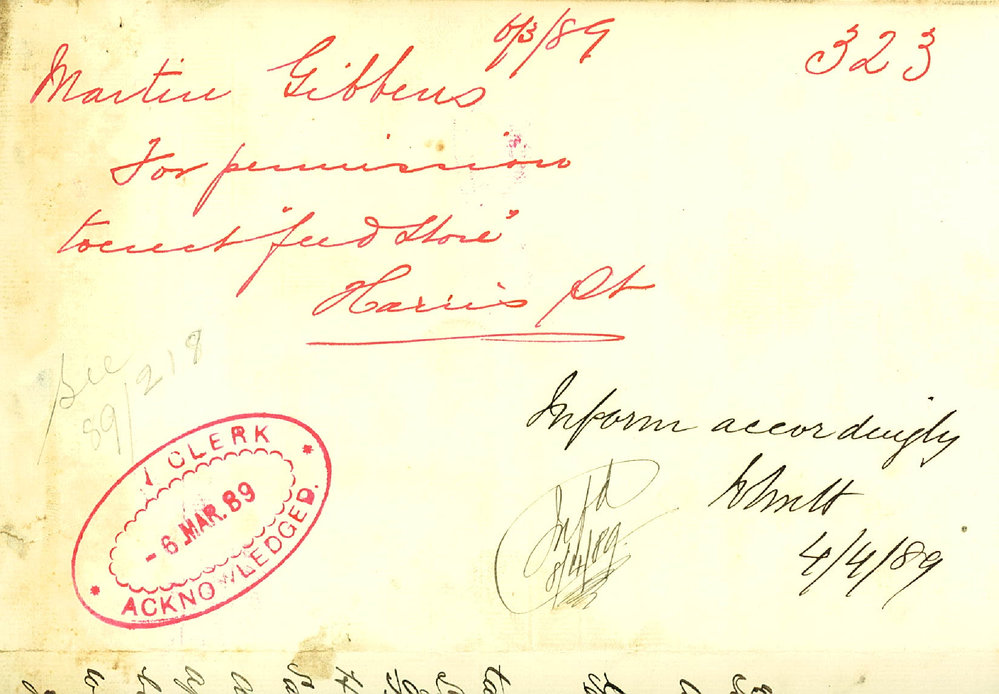 6/3/89
323
Martin Gibbens
For permission
to erect "feed Store"
Harris St
See
89/218
CLERK
- 6 MAR. 89
ACKNOWLEDGED.
Inform accordingly
4/4/89
Infd
8/4/89